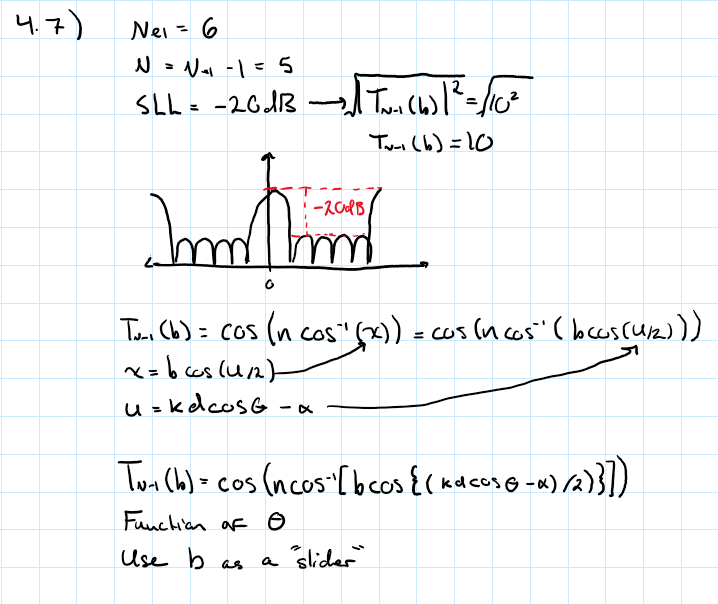 4.7)
Nel = 6
N = Nel - 1 = 5
SLL = -20dB → √|T_{N-1}(b)|² = √10²
T_{N-1}(b) = 10
-20dB
0
T_{N-1}(b) = cos(n cos⁻¹(x)) = cos(n cos⁻¹(b cos(u/2)))
x = b cos(u/2)
u = kd cosθ - α
T_{N-1}(b) = cos(n cos⁻¹[b cos{(kd cosθ - α)/2)}])
Function of θ
Use b as a "slider"